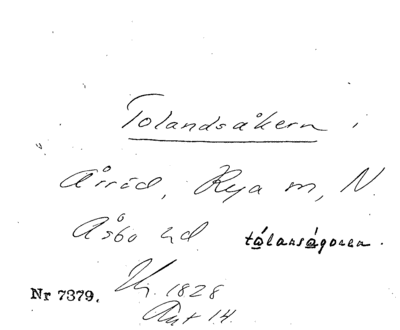 Tolandsåkern i
Årröd, Rya sn, N.
Åsbo hd. tålansågoren.
Nr 7379. 1828
14.